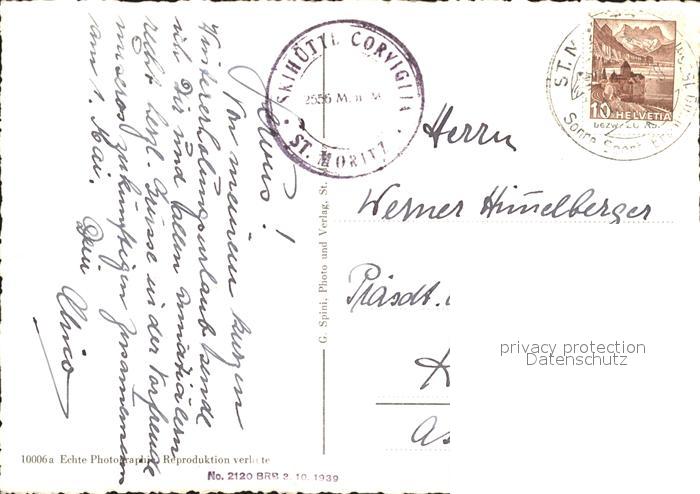 Servus!
Von meinem kurzen
Wintererholungsurlaub sende
ich Dir und allen
recht herzl. Grüsse in der Vorfreude
unseres zukünftigen Zusammen
am 1. Mai.
Dein
SKIHÜTTE CORVIGLIA
2556 M. ü. M.
ST. MORITZ
ST. M
10 HELVETIA
Sonne Sport
Herrn
Werner Himmelberger
privacy protection
Datenschutz
G. Spini, Photo und Verlag, St.
10006a Echte Photographie, Reproduktion verboten
No. 2120 BRB 3. 10. 1939